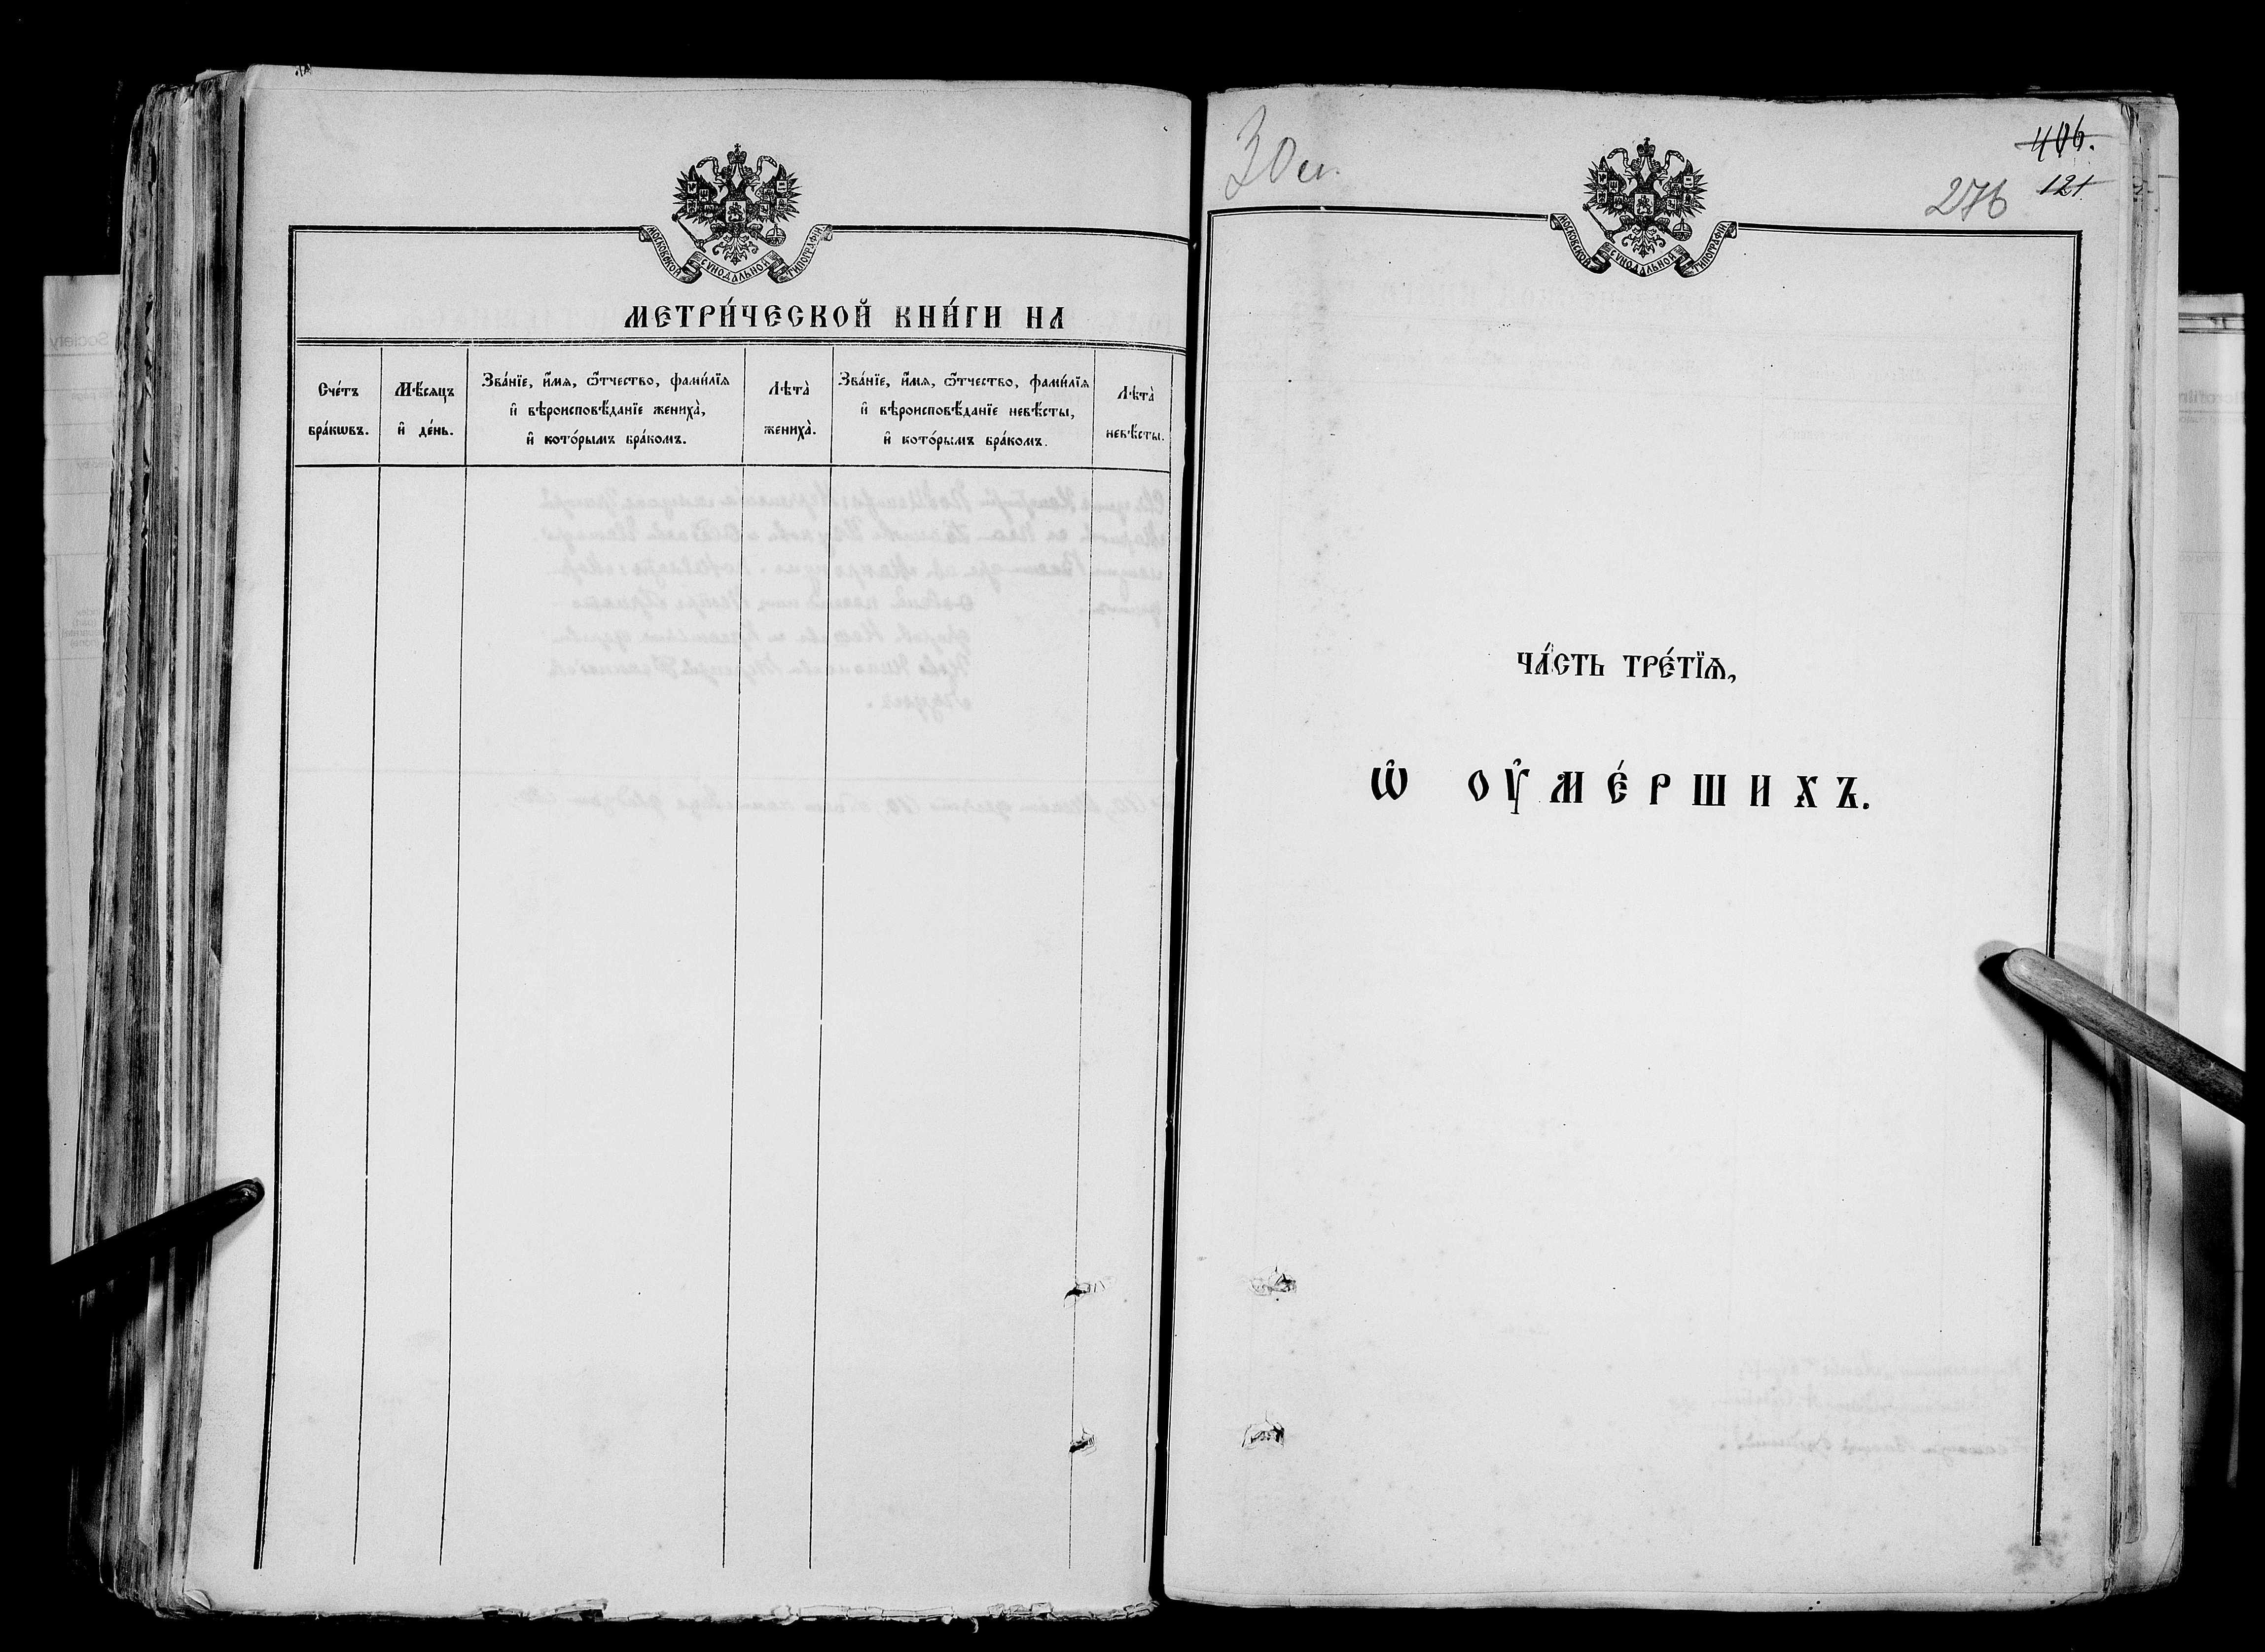 МОСКОВСКОЙ СѴНОДАЛЬНОЙ ТИПОГРАФІИ
МЕТРИ́ЧЕСКОЙ КНИ́ГИ НА
Сче́тъ
бра́кѡвъ.
Мѣ́сяцъ
и҆ де́нь.
Зва́нїе, и҆́мя, ѻ҆́тчество, фами́лїя
и҆ вѣроисповѣ́данїе жениха̀,
и҆ кото́рымъ бра́комъ.
Лѣта̀
жениха̀.
Зва́нїе, и҆́мя, ѻ҆́тчество, фами́лїя
и҆ вѣроисповѣ́данїе невѣ́сты,
и҆ кото́рымъ бра́комъ.
Лѣта̀
невѣ́сты.
406.
276 121
МОСКОВСКОЙ СѴНОДАЛЬНОЙ ТИПОГРАФІИ
ЧА́СТЬ ТРЕ́ТЇѦ,
Ѡ҆ ОУ҆МЕ́РШИХЪ.